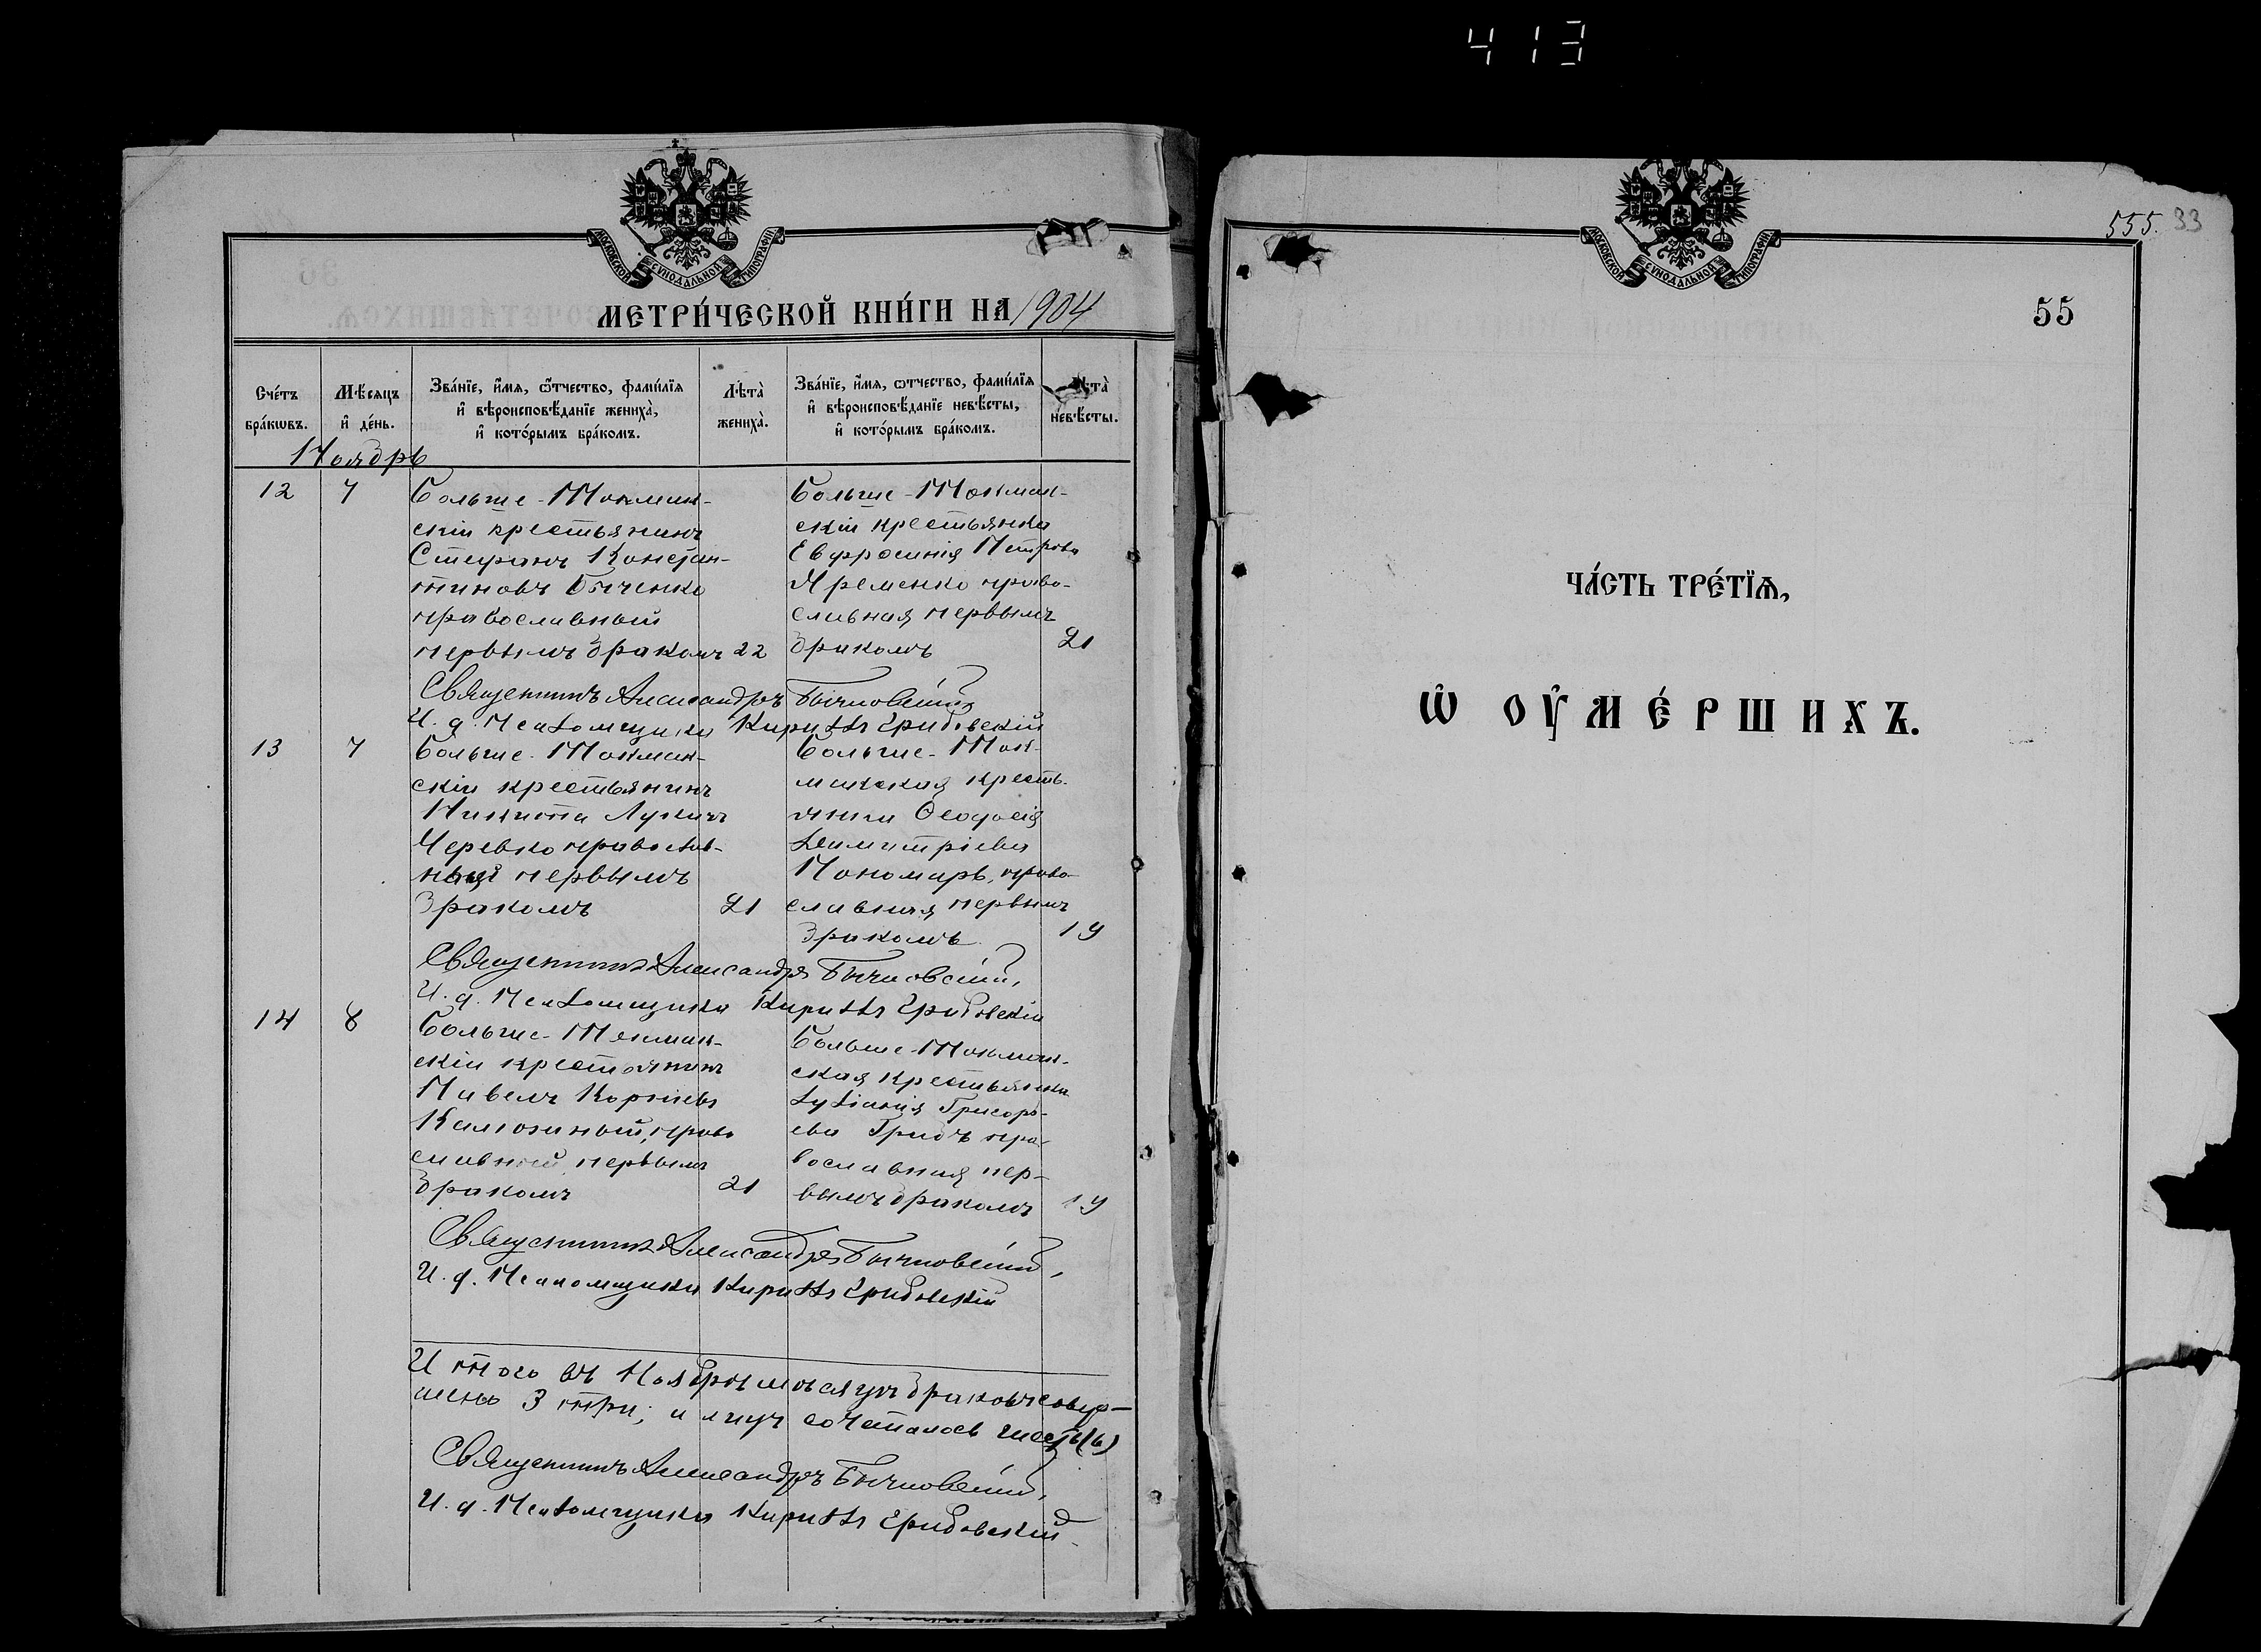 413
МОСКОВСКОЙ СѴНОДАЛЬНОЙ ТИПОГРАФІИ
МЕТРИ́ЧЕСКОЙ КНИ́ГИ НА 1904
Сче́тъ бра́кѡвъ.
Мѣ́сяцъ и҆ де́нь.
Зва́нїе, и҆́мя, ѻ҆́тчество, фами́лїя
и҆ вѣроисповѣ́данїе жениха̀,
и҆ кото́рымъ бра́комъ.
Лѣ́та̀ жениха̀.
Зва́нїе, и҆́мя, ѻ҆́тчество, фами́лїя
и҆ вѣроисповѣ́данїе невѣ́сты,
и҆ кото́рымъ бра́комъ.
невѣ́сты.
Ноябрь
12
7
Больше-Токмак-
скій крестьянинъ
Стефанъ Констан-
тиновъ Быченко
православный
первымъ бракомъ 22
Больше-Токмак-
скій крестьянка
Евфросинія Петрова
Яременко право-
славная первымъ
бракомъ 21
Священникъ Александръ Бычковскій,
И. д. Псаломщика Кириллъ Грибовскій
13
7
Больше-Токмак-
скій крестьянинъ
Никита Лукичъ
Черевко православ-
ный первымъ
бракомъ 21
Больше-Ток-
макская кресть-
янка Ѳеодосія
Димитріева
Пономарь, право-
славная первымъ
бракомъ 19
Священникъ Александръ Бычковскій,
И. д. Псаломщика Кириллъ Грибовскій
14
8
Больше-Токмак-
скій крестьянинъ
Павелъ Корніевъ
Калюжный, право
славный первымъ
бракомъ 21
Больше-Токмак-
ская крестьянка
Іуліанія Григорь-
ева пра-
вославная пер-
вымъ бракомъ 19
Священникъ Александръ Бычковскій,
И. д. Псаломщика Кириллъ Грибовскій
Итого въ Ноябрѣ мѣсяцѣ браковъ совер-
шено 3 три; и лицъ сочеталось шесть (6)
Священникъ Александръ Бычковскій,
И. д. Псаломщика Кириллъ Грибовскій
МОСКОВСКОЙ СѴНОДАЛЬНОЙ ТИПОГРАФІИ
555. 33
55
ЧА́СТЬ ТРЕ́ТЇѦ,
Ѡ҆ ОУ҆МЕ́РШИХЪ.